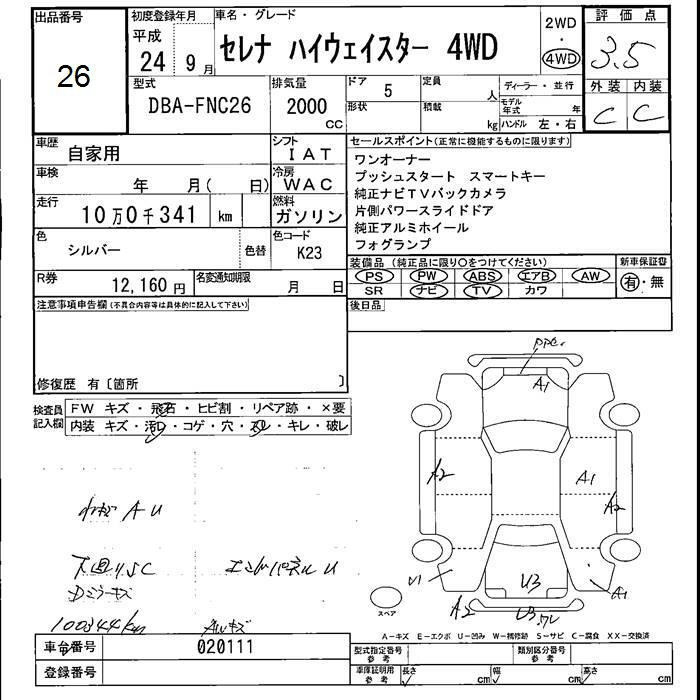 出品番号
26
初度登録年月
平成
24 9月
車名・グレード
セレナ ハイウェイスター 4WD
2WD
・
4WD
評価点
3.5
外装 内装
C C
型式
DBA-FNC26
排気量
2000
CC
ドア 5
形状
定員
人
積載
kg
ディーラー・並行
モデル年式 年
ハンドル 左・右
車歴
自家用
シフト
IAT
車検
年 月( 日)
冷房
WAC
走行
10万0千341 km
燃料
ガソリン
色
シルバー
色替
色コード
K23
R券
12,160円
名変通知期限
月 日
セールスポイント(正常に機能するものに限ります)
ワンオーナー
プッシュスタート スマートキー
純正ナビTVバックカメラ
片側パワースライドドア
純正アルミホイール
フォグランプ
装備品(純正品に限り○をつけてください)
新車保証書
PS PW ABS エアB AW
SR ナビ TV カワ
有・無
後日品
注意事項申告欄(不具合内容等は具体的に記入して下さい)
修復歴 有〔箇所 〕
検査員
記入欄
FW キズ・飛石・ヒビ割・リペア跡・×要
内装 キズ・汚れ・コゲ・穴・スレ・キレ・破レ
A U
下廻りSC
パネルU
Dミラーキズ
100344km
AWキズ
A1
A2
A1
A2
U1
U3
A1
A2
スペア
A-キズ E-エクボ U-凹み W-補修跡 S-サビ C-腐食 XX-交換済
車台番号
020111
登録番号
型式指定番号
参考
類別区分番号
参考
車庫証明用
参考
長さ cm
幅 cm
高さ cm